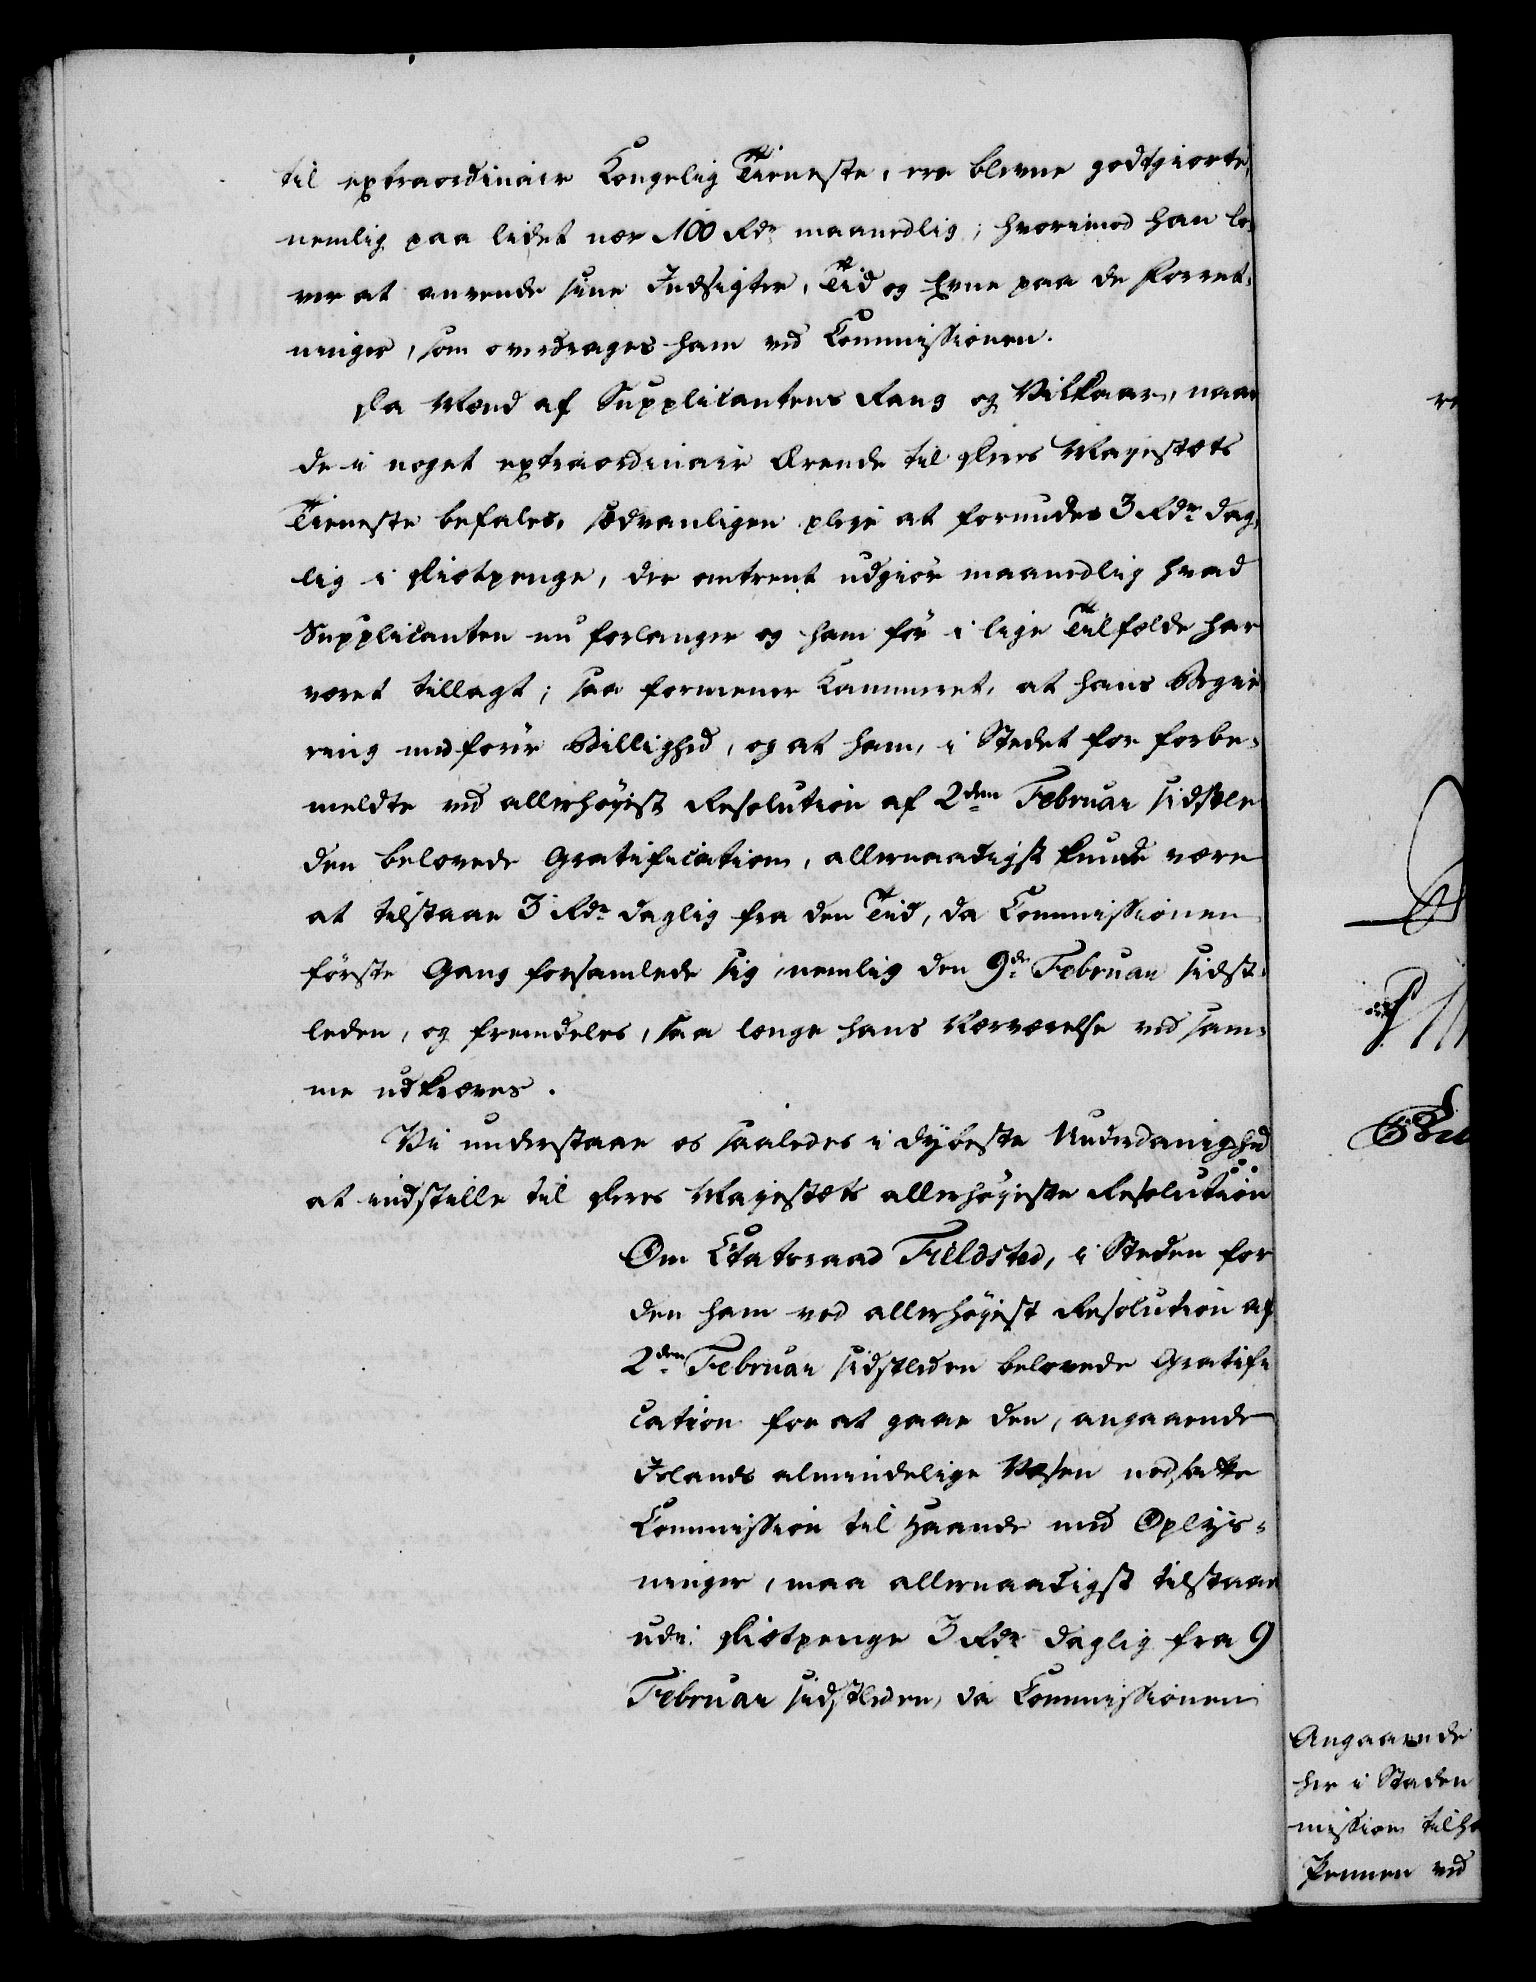 til extraordinair Kongelig Tieneste, ere blevne godtgiorte,
nemlig paa lidet nær 100 Rdr maanedlig; hvorimod han lo-
ver at anvende sine Indsigter, Tid og Evne paa de Forret-
ninger, som overdrages ham ved Commissionen.
Da Mænd af Supplicantens Rang og Vilkaar, naar
de i noget extraordinair Ærende til Deres Majestæts
Tieneste befales, sædvanligen pleje at forundes 3 Rdr dag-
lig i Diætpenge, der omtrent udgiör maanedlig hvad
Supplicanten nu forlanger og ham för i lige Tilfælde har
været tillagt; saa formener Kammeret, at hans Begie-
ring medförer Billighed, og at ham, i Stedet for forbe-
meldte ved allerhöyest Resolution af 2den Februar sidstle-
den belovede Gratification, allernaadigst kunde være
at tilstaae 3 Rdr daglig fra den Tid, da Commissionen
förste Gang forsamlede sig, nemlig den 9de Februar sidst-
leden, og fremdeles, saa længe hans Nærværelse ved sam-
me udkræves.
Vi understaae os saaledes i dybeste Underdanighed
at indstille til Deres Majestæts allerhöyeste Resolution
Om Etatsraad Fieldsted, i Steden for
den ham ved allerhöyest Resolution af
2den Februar sidstleden belovede Gratifi-
cation for at gaae den, angaaende
Islands almindelige Væsen nedsatte
Commission til Haande med Oplys-
ninger, maa allernaadigst tilstaaes
udi Diætpenge 3 Rdr daglig fra 9
Februar sidstleden, da Commissionen
Angaaende
her i Staden
mission til
Pennen ved